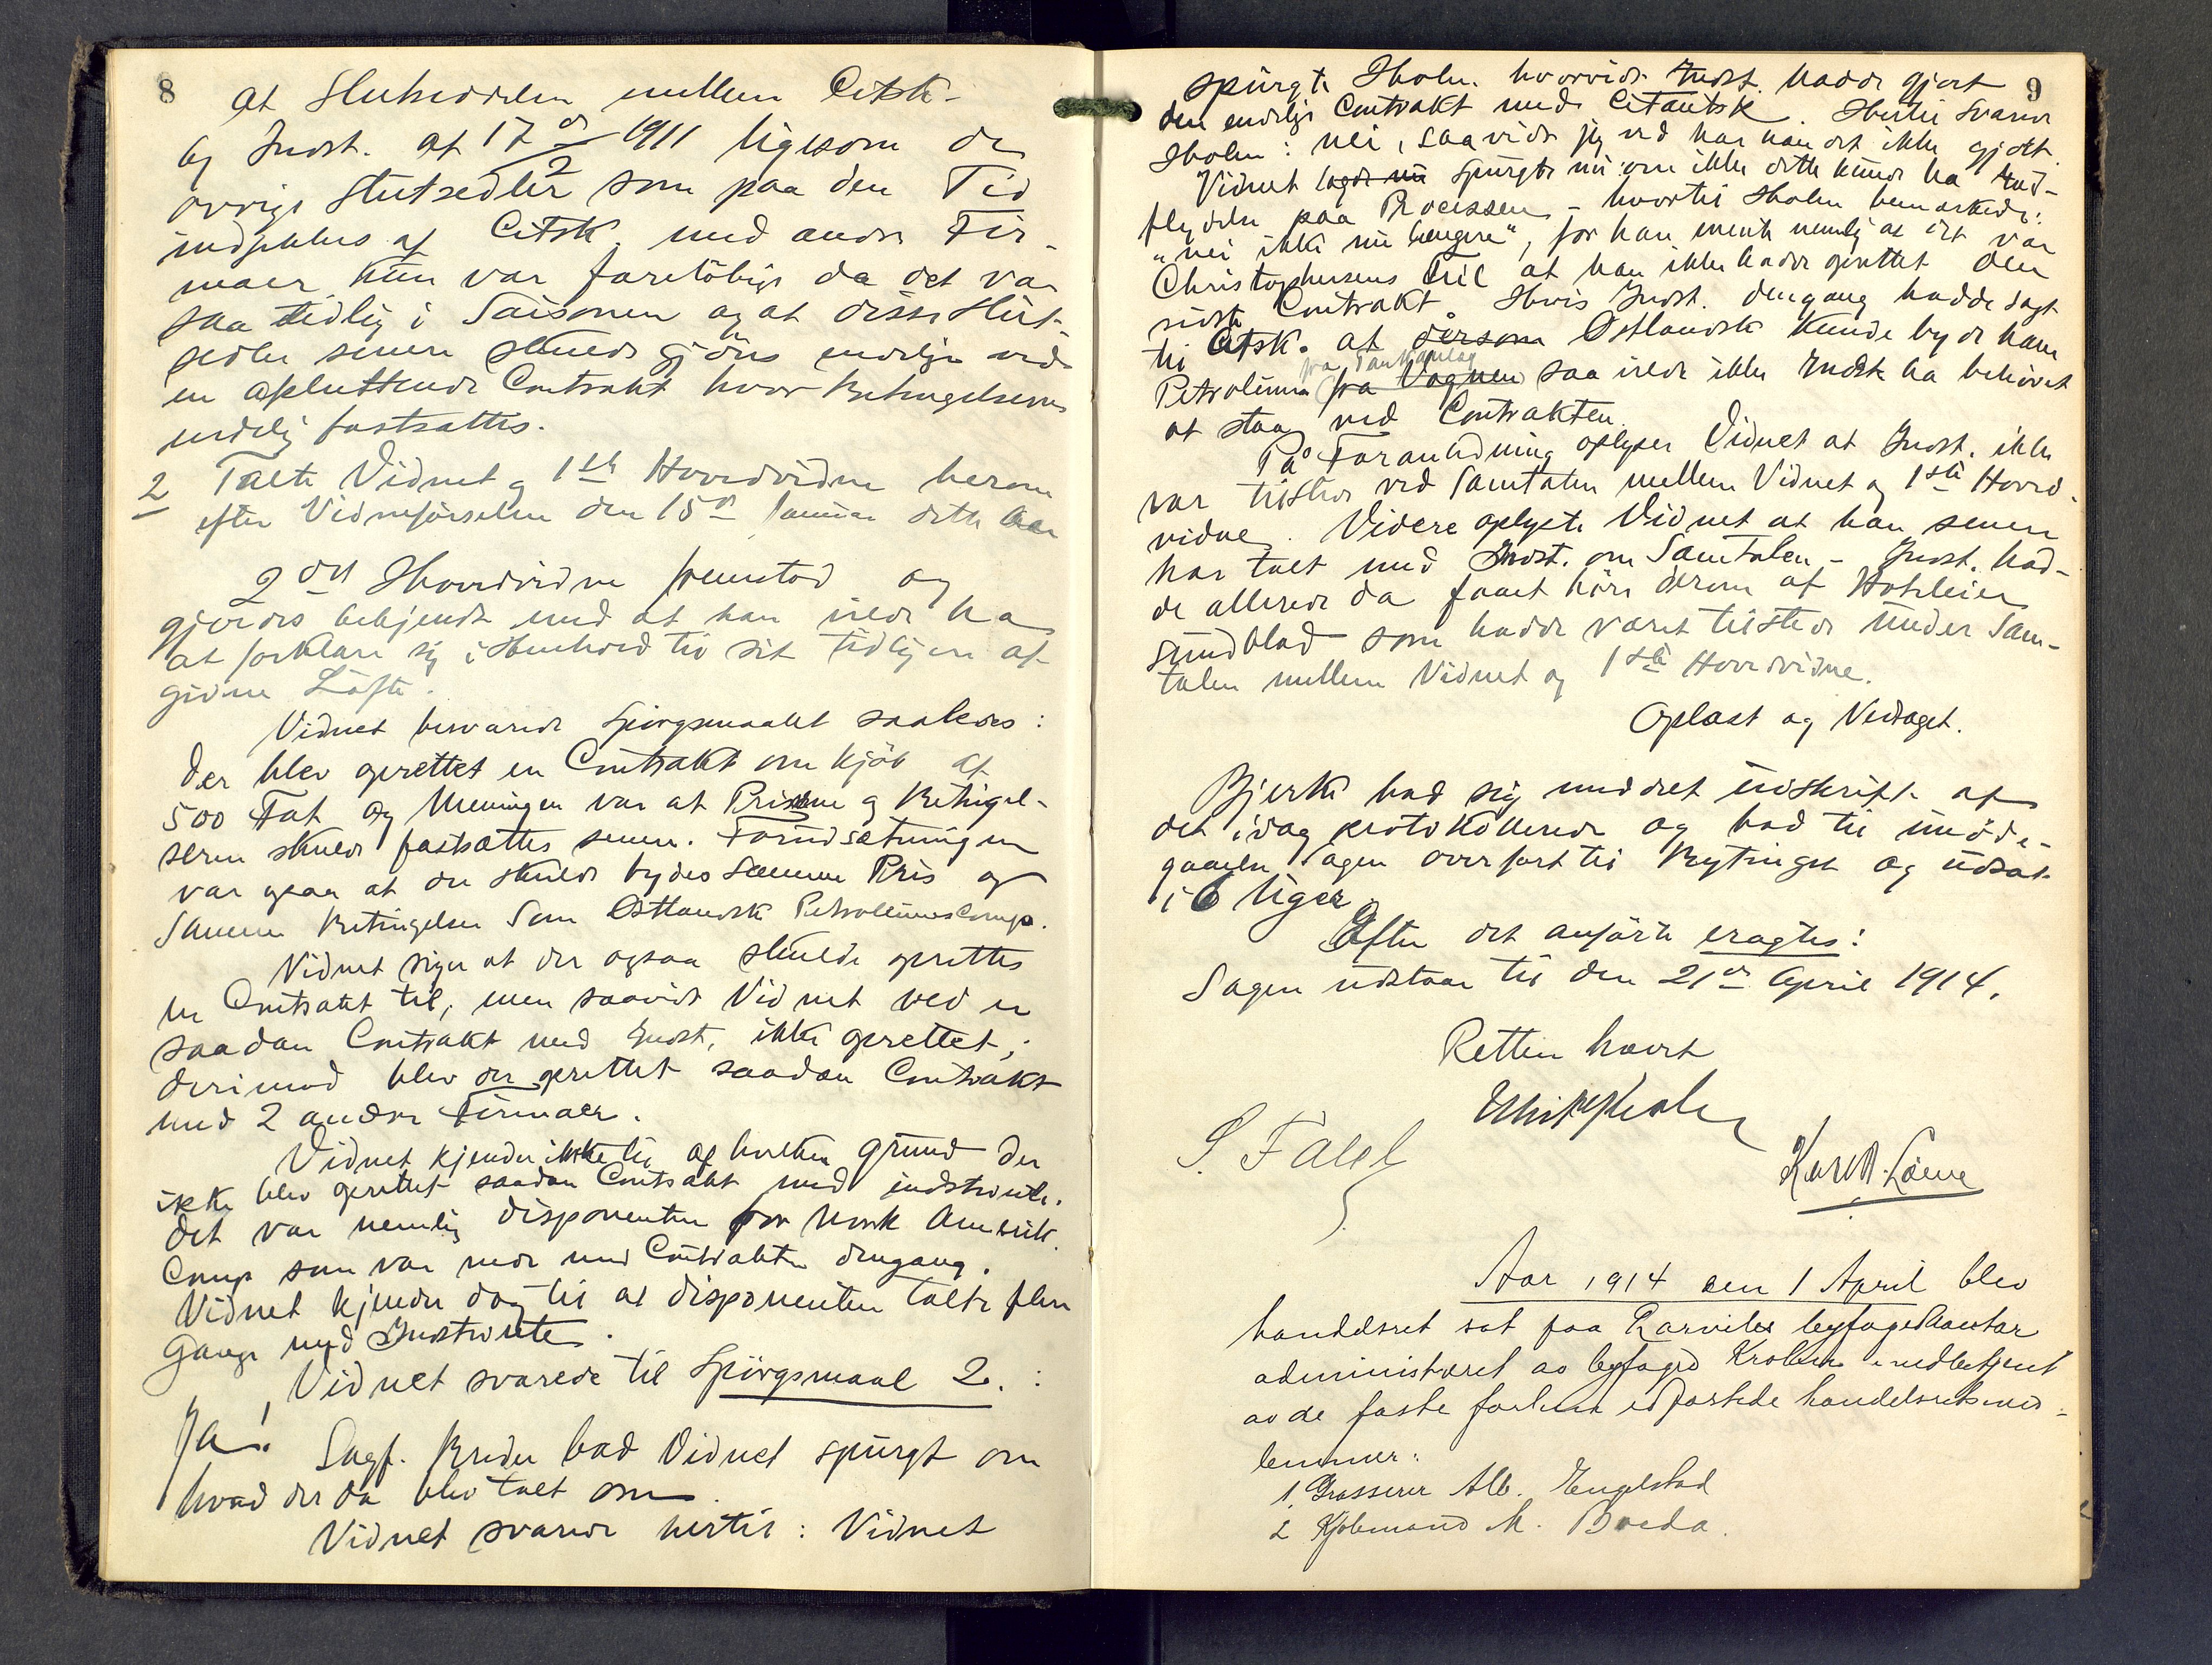 8
at Slutseddelen mellem Citsk.
og Indst. af 17de/2 1911 ligesom de
øvrige Slutsedler som paa den Tid
indgikkes af Citsk. med andre Fir-
maer kun var foreløbige da det var
saa tidlig i Saisonen og at disse Slut-
sedler senere skulde gjöres endelige ved
en afsluttende Contrakt hvor Betingelserne
endelig fastsattes.
2 Talte Vidnet og 1ste Hovedvidne herom
efter Vidneførselen den 15de Januar dette Aar
2det Hovedvidne fremstod og
gjordes bekjendt med at han vilde ha
at forklare sig i Henhold til sit tidligere af-
givne Löfte.
Vidnet besvarede Spörgsmaalet saaledes:
Der blev oprettet en Contrakt om kjöb af
500 Fat og Meningen var at Priserne og Betingel-
serne skulde fastsættes senere. Forudsætningen
var ogsaa at der skulde bydes samme Pris og
samme Betingelser som Østlandsk Petroleumscomp.
Vidnet siger at der ogsaa skulde oprettes
en Contrakt til, men saavidt Vidnet ved er
saadan Contrakt med Indst. ikke oprettet;
derimod blev der oprettet saadan Contrakt
med 2 andre Firmaer.
Vidnet kjender ikke til af hvilken Grund der
ikke blev oprettet saadan Contrakt med indstevnte.
det var nemlig disponenten for Norsk Amerik.
Comp som var nede med Contrakten dengang.
Vidnet kjender dog til at disponenten talte flere
Gange med Indstevnte.
Vidnet svarede til Spörgsmaal 2.:
Ja!
Sagf. Breder bad Vidnet spurgt om
hvad der da blev talt om.
Vidnet svarede hertil: Vidnet
9
spurgte Holm. hvorvidt Indst. hadde gjort
den endelige Contrakt med Citantsk. Hertil svarede
Holm: nei, saavidt jeg ved har han det ikke gjort.
Vidnet lagde nu spurgte nu om ikke dette kunde ha Ind-
flydelse paa Processen - hvortil Holm bemærkede:
"nei ikke nu længere", for han mente nemlig at det var
Christophersens Feil at han ikke hadde oprettet den
sidste Contrakt. Hvis Indst. dengang hadde sagt
til Citsk. at dersom Østlandsk kunde byde ham
fra Tankanlæg
Petroleum fra Vognen saa vilde ikke Indst. ha behøvet
at staa ved Contrakten.
Paa Foranledning oplyser Vidnet at Indst. ikke
var tilstede ved Samtalen mellem Vidnet og 1ste Hoved-
vidne. Videre oplyste Vidnet at han senere
har talt med Indst. om Samtalen - Indst. had-
de allerede da faaet höre derom af Hoteleier
Sundblad som hadde været tilstede under Sam-
talen mellem Vidnet og 1ste Hovedvidne.
Oplæst og Vedtaget.
Bjerke bad sig meddelt Udskrift af
det idag protokollerede og bad til imöde-
gaaelse Sagen overført til Bytinget og udsat
i 6 Uger.
Efter det anførte eragtes:
Sagen udstaar til den 21de April 1914.
Retten hævet
S. Falch
Karl A. Löwe
Aar 1914 den 1 April blev
handelsret sat paa Larviks byfogedkontor
administreret av byfoged Krohn og medbetjent
av de faste handelsretsmed-
lemmer:
1. Grosserer Alb. Engelstad
2 Kjøbmand M. Breda.